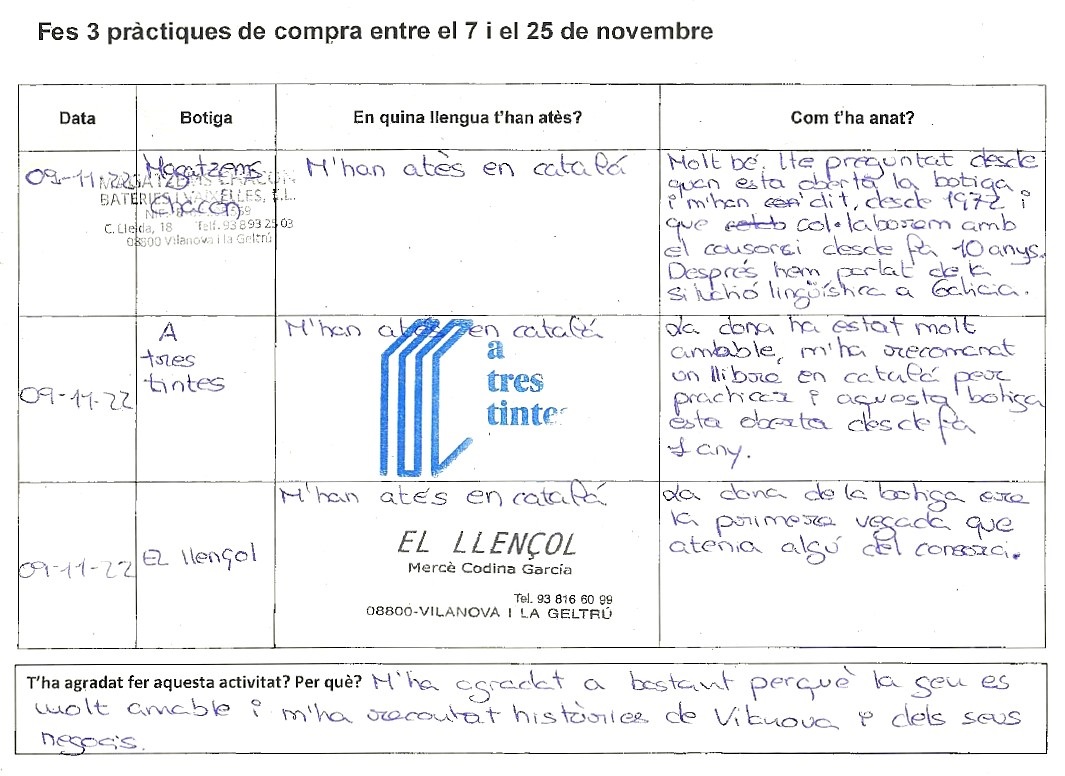 Fes 3 pràctiques de compra entre el 7 i el 25 de novembre
Data
Botiga
En quina llengua t'han atès?
Com t'ha anat?
09-11-22
Magatzems
Chacon
BATERIES I VAIXELLES, S.L.
C. Lleida, 18 Telf. 93 893 25 03
08800 Vilanova i la Geltrú
M'han atès en català
Molt bé. He preguntat desde
quan esta oberta la botiga
i m'han dit, desde 1972 i
que col·laborem amb
el consorci desde fa 10 anys.
Després hem parlat de la
situchió lingüística a Galicia.
09-11-22
A
tres
tintes
M'han atés en català
a
tres
tintes
La dona ha estat molt
ambable, m'ha recomanat
un llibre en català per
practicar i aquesta botiga
esta oberta desde fa
1 any.
09-11-22
EL llençol
M'han atés en català
EL LLENÇOL
Mercè Codina García
Tel. 93 816 60 99
08800-VILANOVA I LA GELTRÚ
La dona de la botiga era
la primera vegada que
atenia algú del consorci.
T'ha agradat fer aquesta activitat? Per què? M'ha agradat a bastant perquè la geu es
molt amable i m'ha recontat històries de Vilanova i dels seus
negocis.